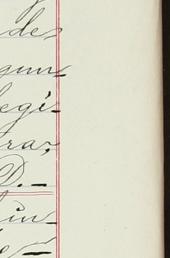 des
gun-
legi-
ra,
D. —
in-